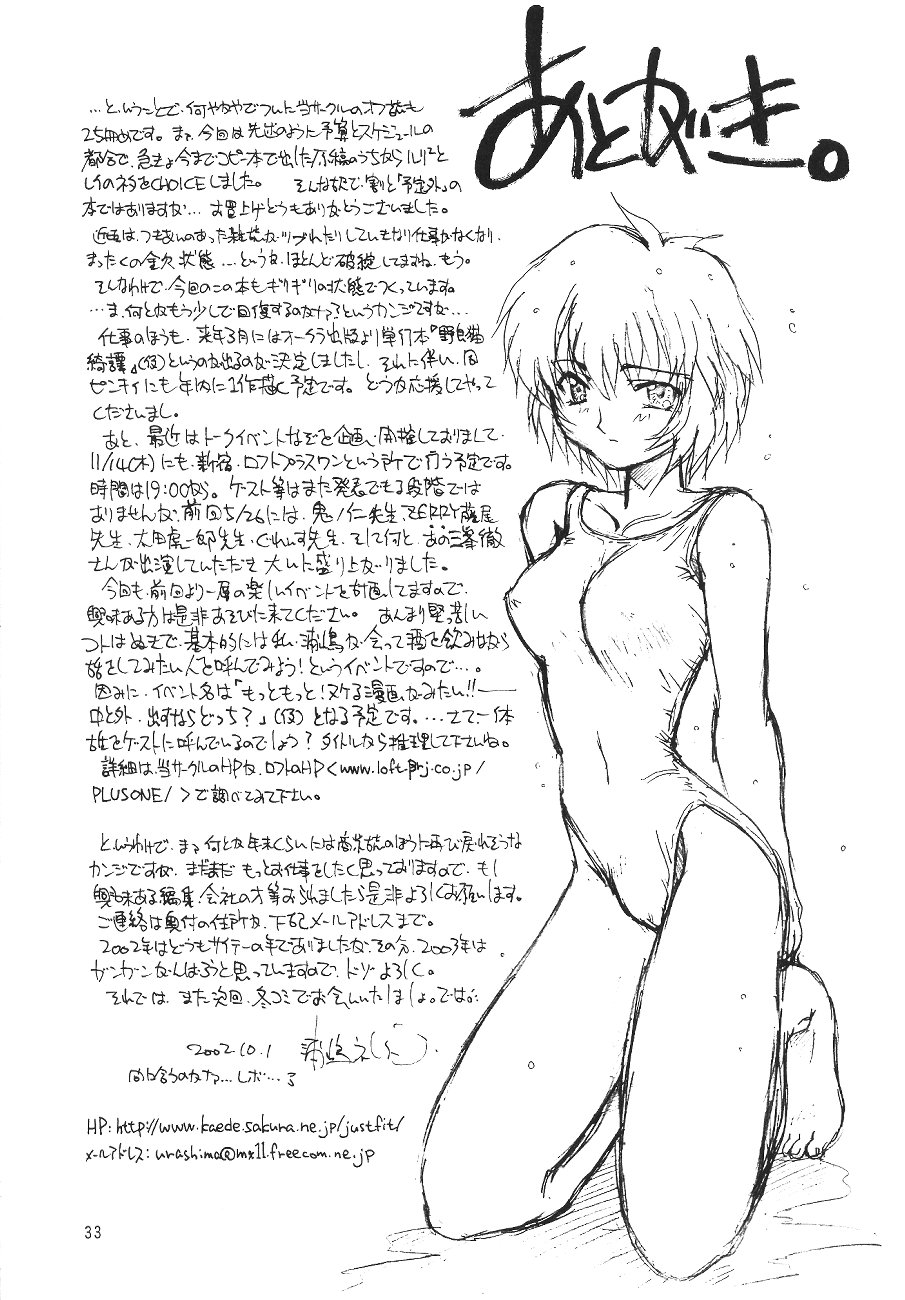 あとがき。
…ということで、何やかやでついに当サークルのオフ誌も
25冊めです。ま、今回は先述のように予算とスケジュールの
都合で、急きょ今までコピー本で出した原稿のうちからルリ²と
レイのネタをCHOICEしました。 そんな訳で、割と「予定外」の
本ではありますが…お買上げどうもありがとうございました。
近況は、つきあいのあった雑誌がツブれたりしていきなり仕事がなくなり、
まったくの金欠状態…というか、ほとんど破綻してますね、もう。
そんなわけで、今回のこの本もギリギリの状態でつくっています。
…ま、何とかもう少しで回復するのかな?というカンジですが…
仕事のほうも、来年3月にはオークラ出版より単行本『野良猫
綺譚』(仮)というのが出るのが決定しましたし、それに伴い、同
ゼンキイにも年内に1作描く予定です。どうか応援してやって
くださいまし。
あと、最近はトークイベントなぞを企画・開催しておりまして、
11/14(木)にも、新宿・ロフトプラスワンという所で行う予定です。
時間は19:00から。ゲスト等はまだ発表できる段階では
ありませんが、前回5/26には、鬼ノ仁先生、ZERRY藤尾
先生、太田虎一郎先生、ぐれいす先生、そして何と、あの三峯徹
さんが出演していただき大いに盛り上がりました。
今回も前回より一層の楽しいイベントを計画してますので、
興味ある方は是非あそびに来てください。 あんまり堅苦しい
コトはぬきで、基本的には私・浦嶋が会って酒を飲みながら
話をしてみたい人を呼んでみよう!というイベントですので…。
因みに、イベント名は「もっともっと!ヌケる漫画がみたい!!──
中と外、出すならどっち?」(仮)となる予定です。…さて、一体
誰をゲストに呼んでいるのでしょう?タイトルから推理して下さいね。
詳細は、当サークルのHPか、ロフトのHP<www.loft-prj.co.jp/
PLUSONE/>で調べてみて下さい。
というわけで、まぁ何とか年末くらいには商業誌のほうに再び戻れそうな
カンジですが、まだまだもっとお仕事をしたく思っておりますので、もし
興味ある編集・会社の方等おられましたら是非よろしくお願いします。
ご連絡は奥付の住所か、下記メールアドレスまで。
2002年はどうもサイテーの年でありましたが、その分、2003年は
ガンガンがんばろうと思っていますので、ドゾよろしく。
それでは、また次回、冬コミでお会いいたしましょ。では。
2002.10.1
間に合うのかなァ…
HP:http://www.kaede.sakura.ne.jp/justfit/
メールアドレス:urashima@mx11.freecom.ne.jp
33